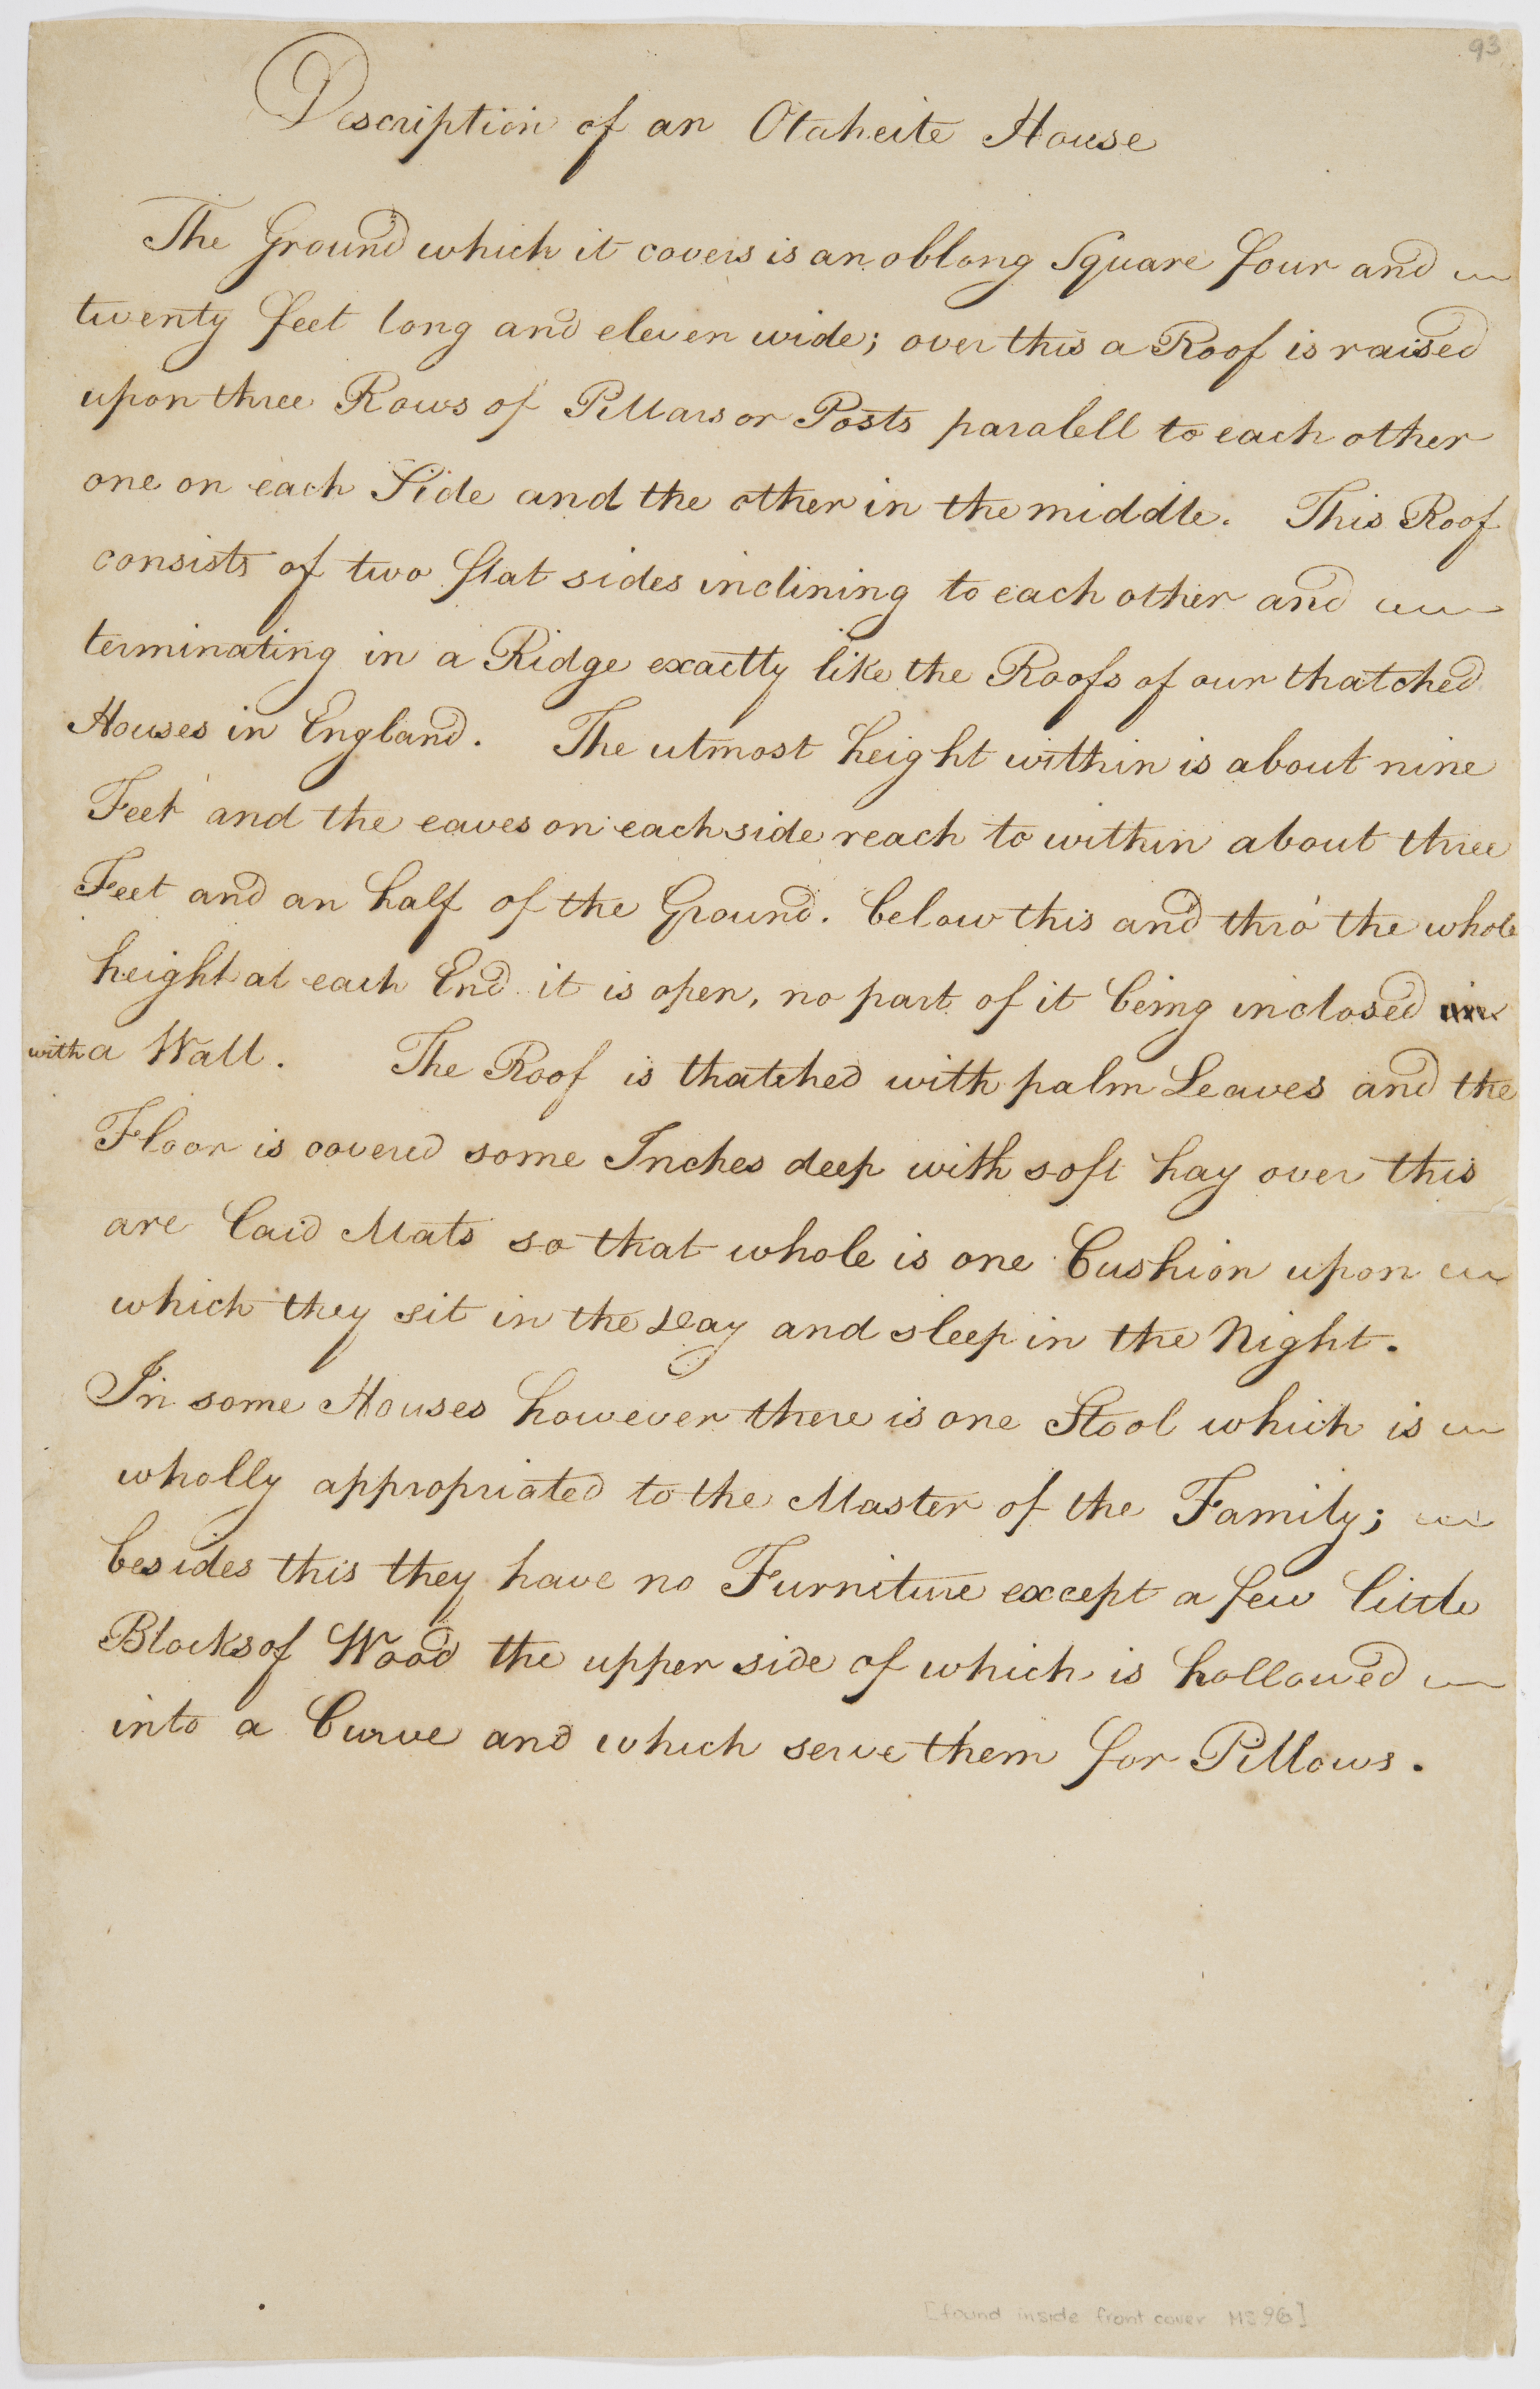 93
Description of an Otaheite House
The Ground which it covers is an oblong Square four and
twenty feet long and eleven wide; over this a Roof is raised
upon three Rows of Pillars or Posts paralell to each other
one on each Side and the other in the middle. This Roof
consists of two flat sides inclining to each other and
terminating in a Ridge exactly like the Roofs of our thatched
Houses in England. The utmost height within is about nine
Feet and the eaves on each side reach to within about three
Feet and an half of the Ground. below this and thro' the whole
height at each End it is open, no part of it being inclosed in
with a Wall. The Roof is thatched with palm Leaves and the
Floor is covered some Inches deep with soft hay over this
are laid Mats so that whole is one Cushion upon
which they sit in the Day and sleep in the Night.
In some Houses however there is one Stool which is
wholly appropriated to the Master of the Family;
besides this they have no Furniture except a few little
Blocks of Wood the upper side of which is hollowed
into a Curve and which serve them for Pillows.
[found inside front cover MS 96]